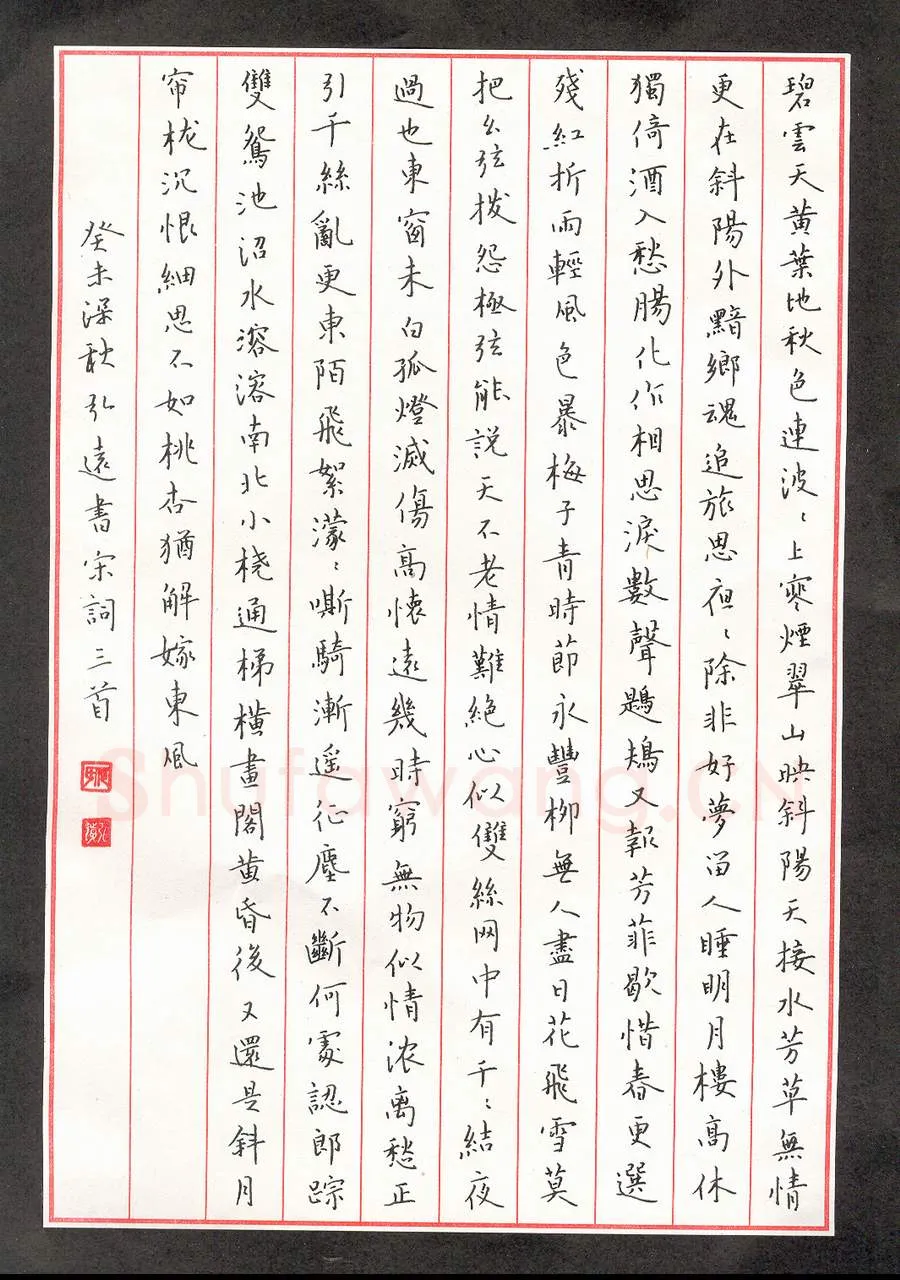 碧雲天黄葉地秋色連波〻上寒煙翠山映斜陽天接水芳草無情
更在斜陽外黯鄉魂追旅思夜〻除非好夢留人睡明月樓高休
獨倚酒入愁腸化作相思淚數聲鶗鴂又報芳菲歇惜春更選
殘紅折雨輕風色暴梅子青時節永豐柳無人盡日花飛雪莫
把幺弦拨怨極弦能説天不老情難絶心似雙絲网中有千〻結夜
過也東窗未白孤燈滅傷高懷遠幾時窮無物似情浓离愁正
引千絲亂更東陌飛絮濛〻嘶騎漸遥征塵不斷何處認郎踪
雙鴛池沼水溶溶南北小桡通梯横畫閣黄昏後又還是斜月
帘栊沉恨細思不如桃杏猶解嫁東風
癸未深秋弘遠書宋詞三首
Shufawang.CN